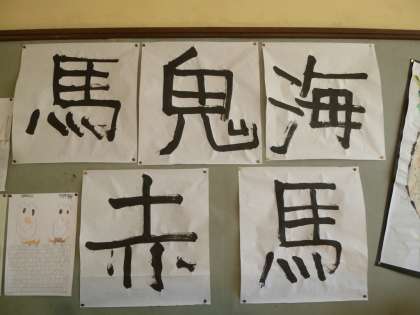 馬 鬼 海
赤 馬